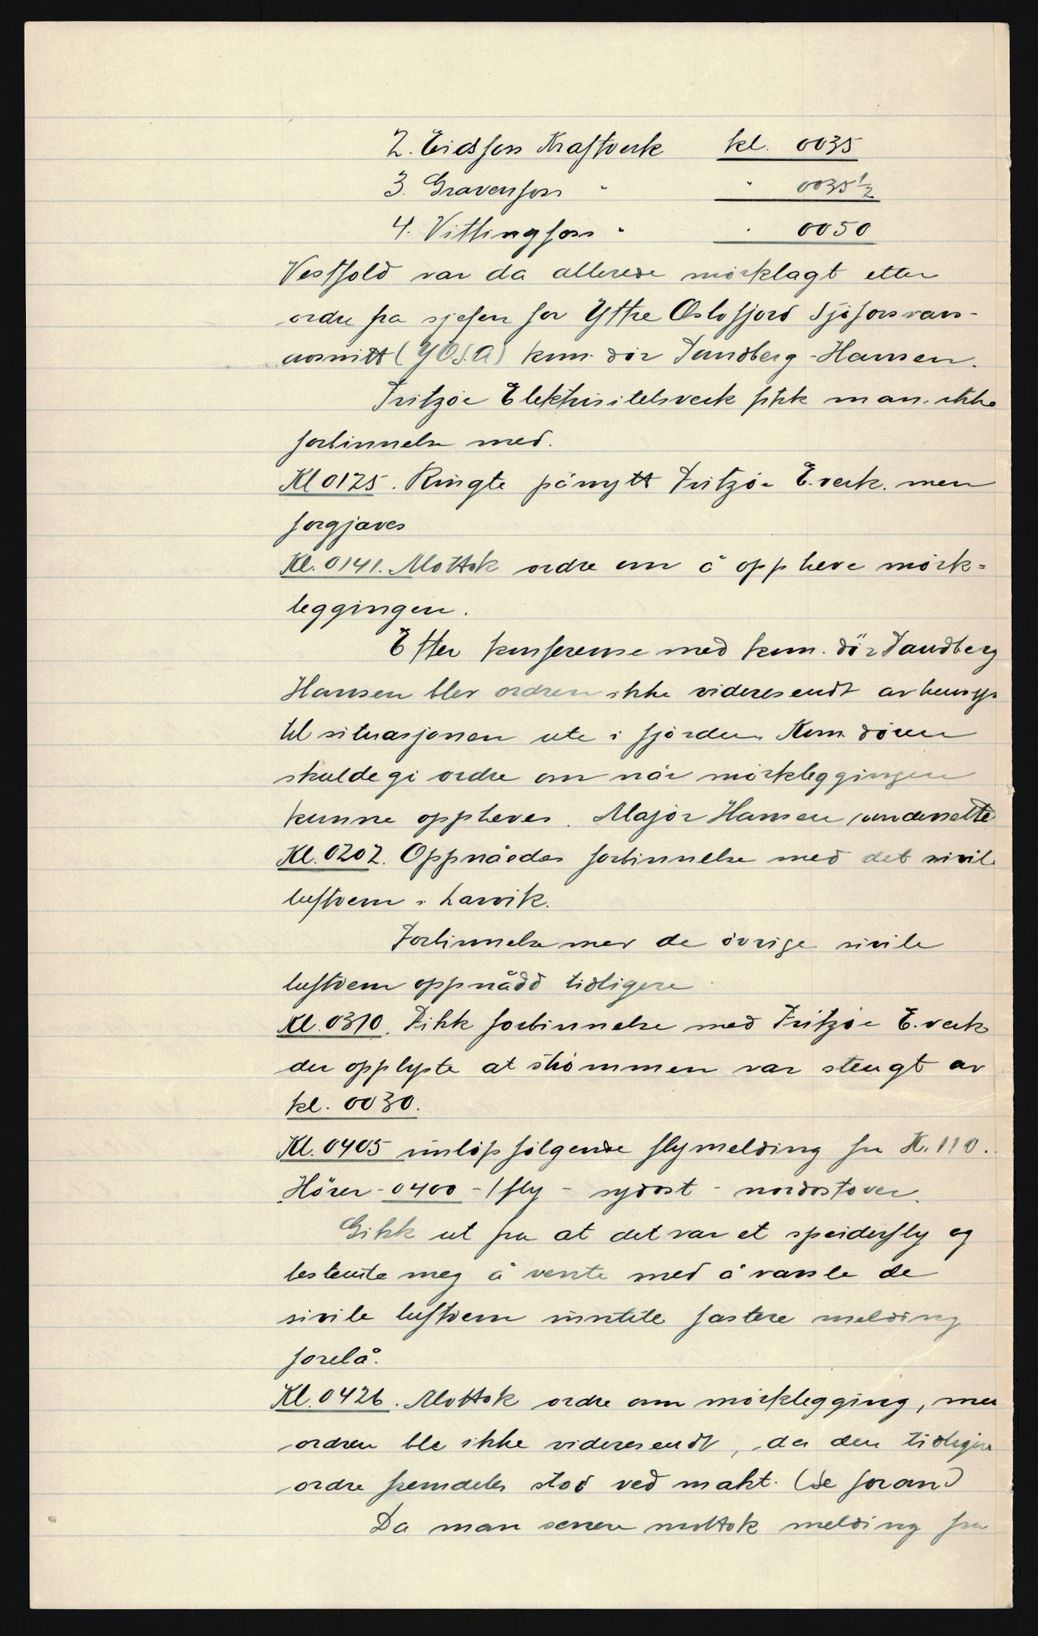 2. Eidsfoss Kraftverk kl. 0035
3. Gravenfoss " " 0035 1/2
4. Vittingfoss " " 0050
Vestfold var da allerede mörklagt etter
ordre fra sjefen for Ytre Oslofjord Sjöforsvars-
avsnitt (YOSA) kom. dör Sandberg-Hansen.
Fritzöe Elektrisitetsverk fikk man ikke
forbinnelse med.
Kl 0125. Ringte pånytt Fritzöe E.verk. men
forgjaves
Kl. 0141. Mottok ordre om å oppheve mörk-
leggingen.
Efter konferense med kom. dör Sandberg
Hansen blev ordren ikke videresendt av hensyn
til situasjonen ute i fjorden. Kom. dören
skulde gi ordre om når mörkleggingen
kunne oppheves. Major Hansen underrettet
Kl. 0202. Oppnåedes forbinnelse med det sivile
luftvern i Larvik.
Forbinnelse med de övrige sivile
luftvern oppnådd tidligere
Kl. 0310. Fikk forbinnelse med Fritzöe E.verk
der opplyste at strömmen var stengt av
kl. 0030.
Kl. 0405 innlöp fölgende flymelding fra K. 110.
Hörer - 0400 - 1 fly - sydost - nordostover.
Gikk ut fra at det var et speiderfly og
bestemte meg å vente med å varsle de
sivile luftvern inntil fastere melding
forelå.
Kl. 0426. Mottok ordre om mörklegging, men
ordren ble ikke videresendt, da den tidligere
ordre fremdeles stod ved makt. (Se foran)
Da man senere mottok melding fra